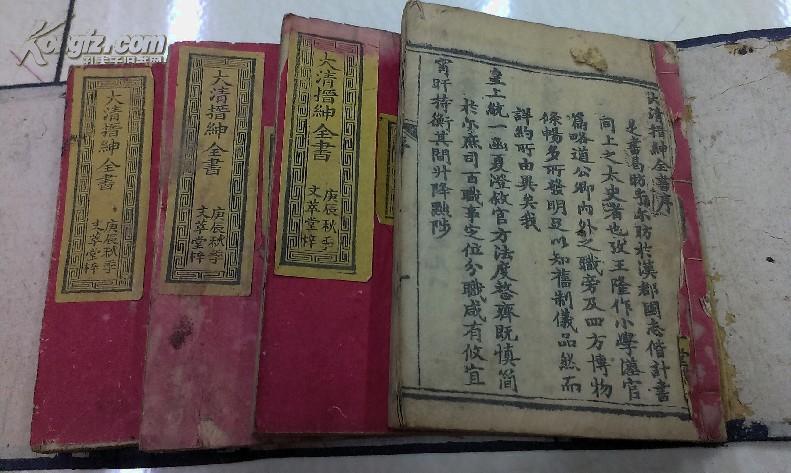 Kongfz.com
孔夫子旧书网
大清搢紳全書
庚辰秋季
文萃堂梓
大清搢紳全書
庚辰秋季
文萃堂梓
大清搢紳全書
庚辰秋季
文萃堂梓
大清搢紳全書序
是書曷昉乎亦昉於漢郡國志偕計書
同上之太史者也攷王隆作小學漢官
篇略道公卿內外之職旁及四方博物
條暢多所發明足以知舊制儀品然而
詳約所由異矣我
皇上統一函夏澄敘官方法度整齊既慎簡
於尔庶司百職事定位分職咸有攸宜
宵旰持衡其間升降黜陟